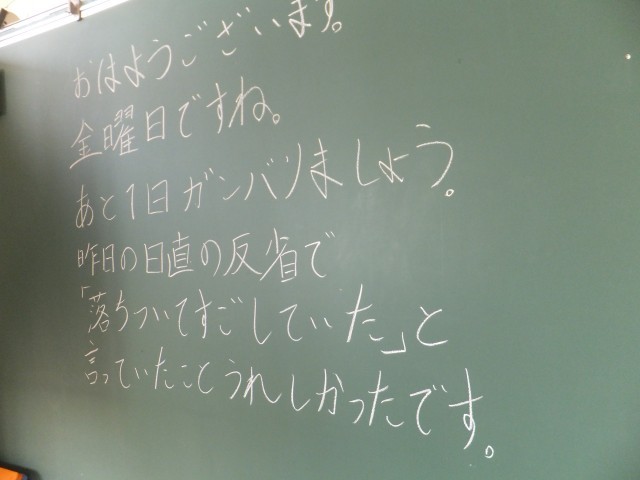 おはようございます。
金曜日ですね。
あと1日ガンバリましょう。
昨日の日直の反省で
「落ちついてすごしていた」と
言っていたことうれしかったです。